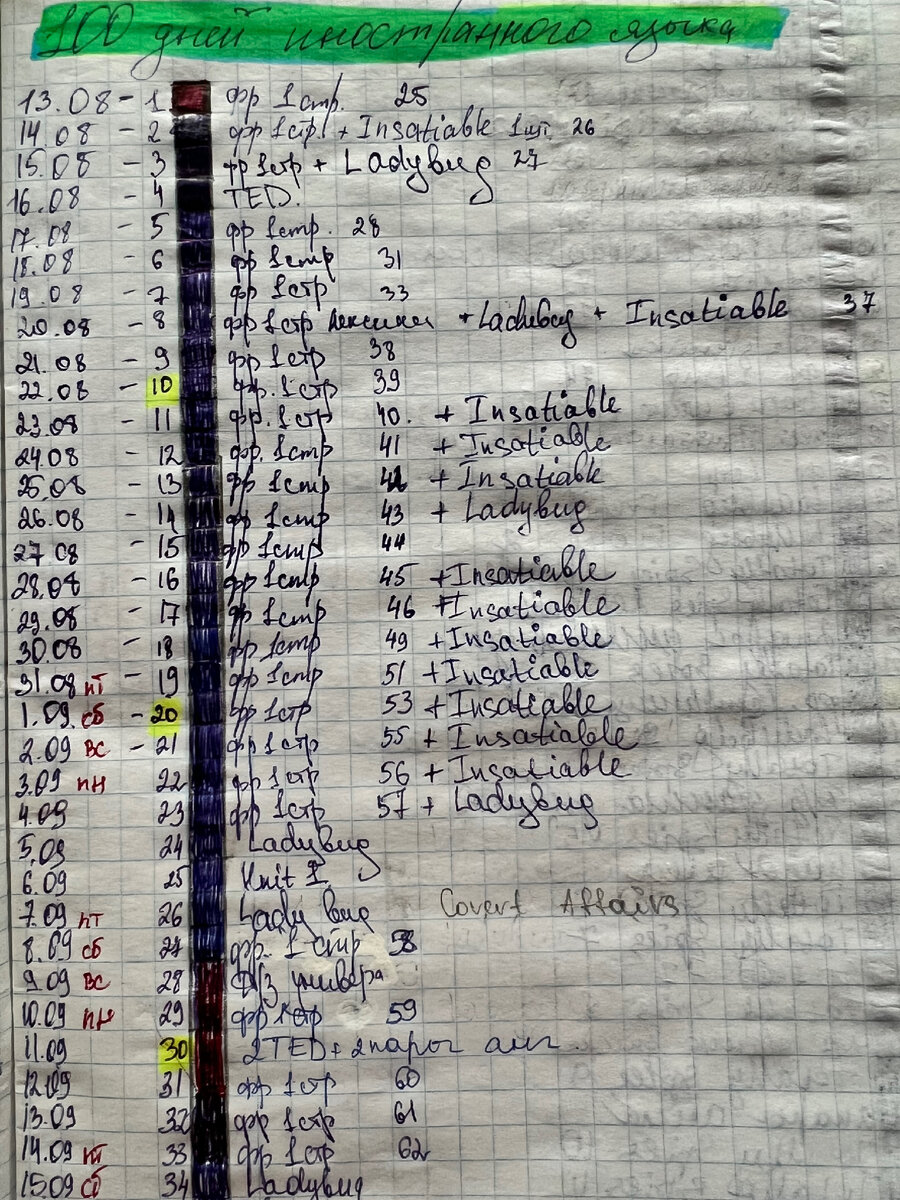 100 дней иностранного языка
13.08 - 1 фр 1 стр. 25
14.08 - 2 фр 1стр. + Insatiable 1шт. 26
15.08 - 3 фр 1стр + Ladybug 27
16.08 - 4 TED.
17.08 - 5 фр 1стр. 28
18.08 - 6 фр 1стр 31
19.08 - 7 фр 1стр 33
20.08 - 8 фр 1стр лексики + Ladybug + Insatiable 37
21.08 - 9 фр 1стр 38
22.08 - 10 фр. 1стр 39
23.08 - 11 фр. 1стр 40. + Insatiable
24.08 - 12 фр. 1стр 41 + Insatiable
25.08 - 13 фр 1стр 42 + Insatiable
26.08 - 14 фр 1стр 43 + Ladybug
27.08 - 15 фр 1стр 44
28.08 - 16 фр 1стр 45 + Insatiable
29.08 - 17 фр 1стр 46 + Insatiable
30.08 - 18 фр 1стр 49 + Insatiable
31.08 пт - 19 фр 1стр 51 + Insatiable
1.09. сб - 20 фр 1стр 53 + Insatiable
2.09 вс - 21 фр 1стр 55 + Insatiable
3.09 пн 22 фр 1стр 56 + Insatiable
4.09 23 фр 1стр 57 + Ladybug
5.09 24 Ladybug
6.09 25 Unit 1.
7.09 пт 26 Lady bug Covert Affairs
8.09 сб 27 фр. 1 стр 58
9.09 вс 28 Д/з универа
10.09 пн 29 фр 1стр 59
11.09 30 2TED + 2пары анг.
12.09 31 фр 1стр 60
13.09 32 фр 1стр 61
14.09 пт 33 фр 1стр 62
15.09 сб 34 Ladybug